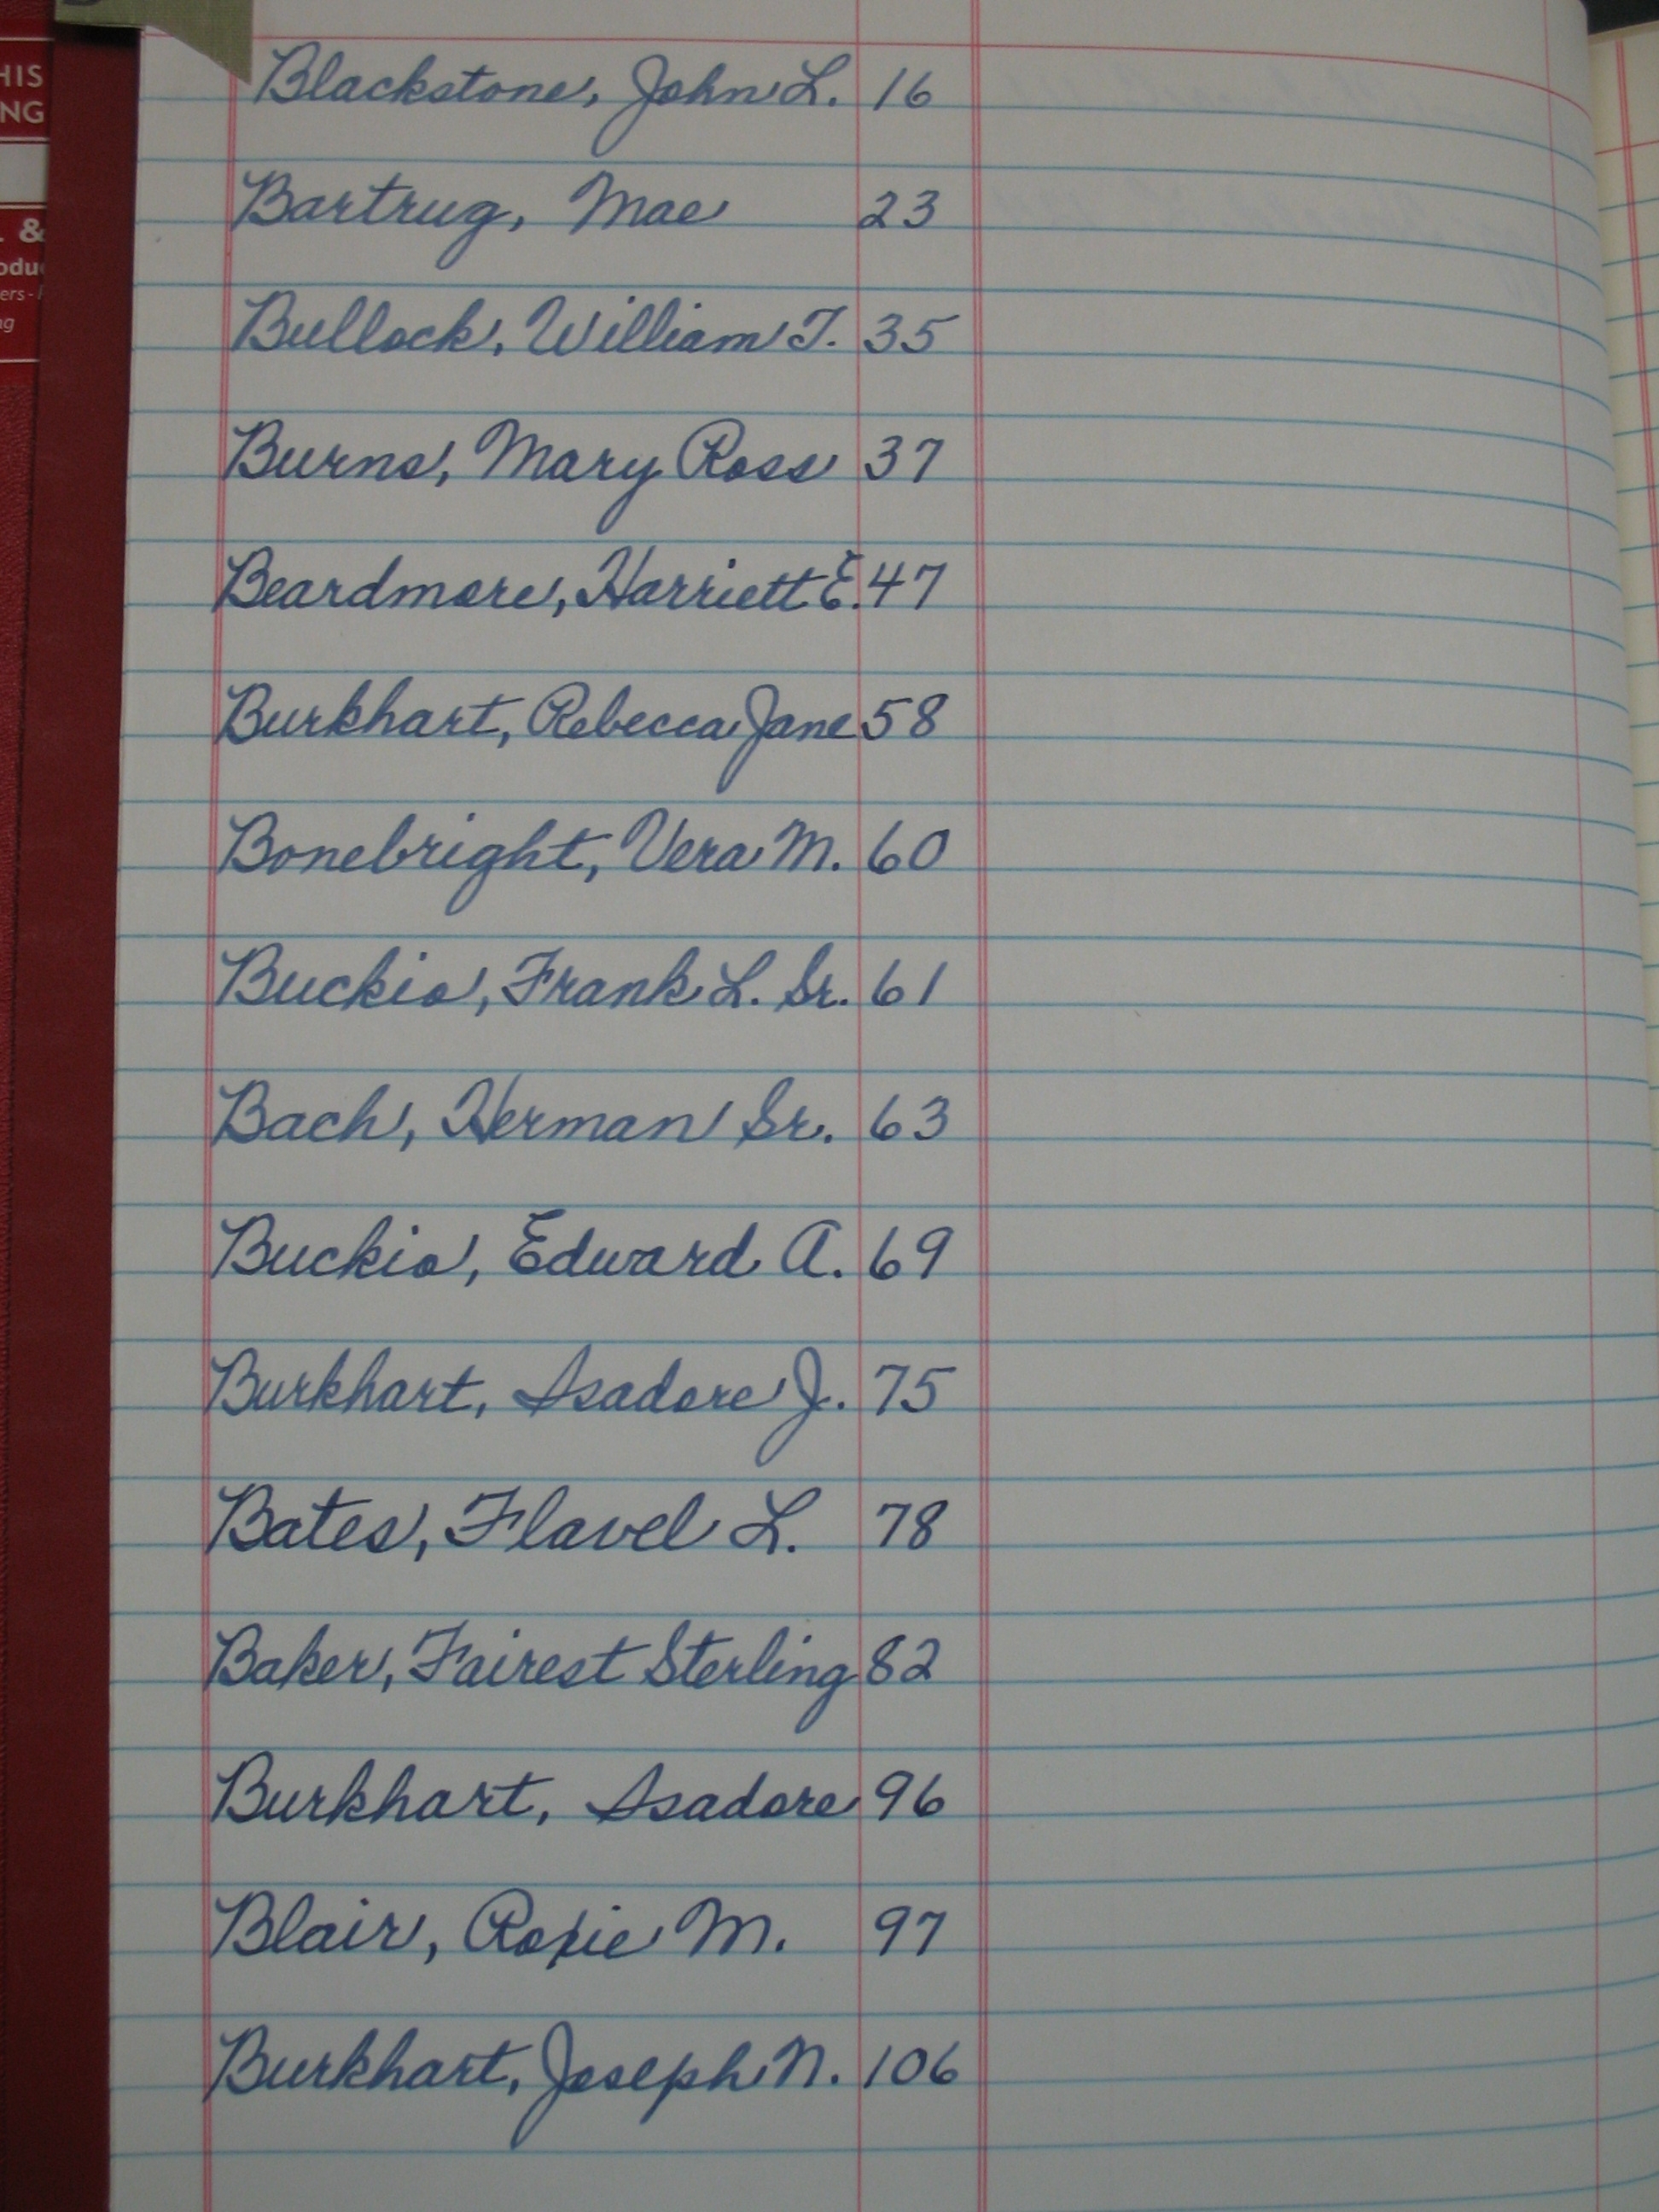 HIS
NG
&
odu
ers -
g
Blackstone, John L. 16
Bartrug, Mae 23
Bullock, William T. 35
Burns, Mary Ross 37
Beardmore, Harriett E. 47
Burkhart, Rebecca Jane 58
Bonebright, Vera M. 60
Buckio, Frank L. Sr. 61
Bach, Herman Sr. 63
Buckio, Edward A. 69
Burkhart, Isadore J. 75
Bates, Flavel L. 78
Baker, Fairest Sterling 82
Burkhart, Isadore 96
Blair, Roxie M. 97
Burkhart, Joseph N. 106